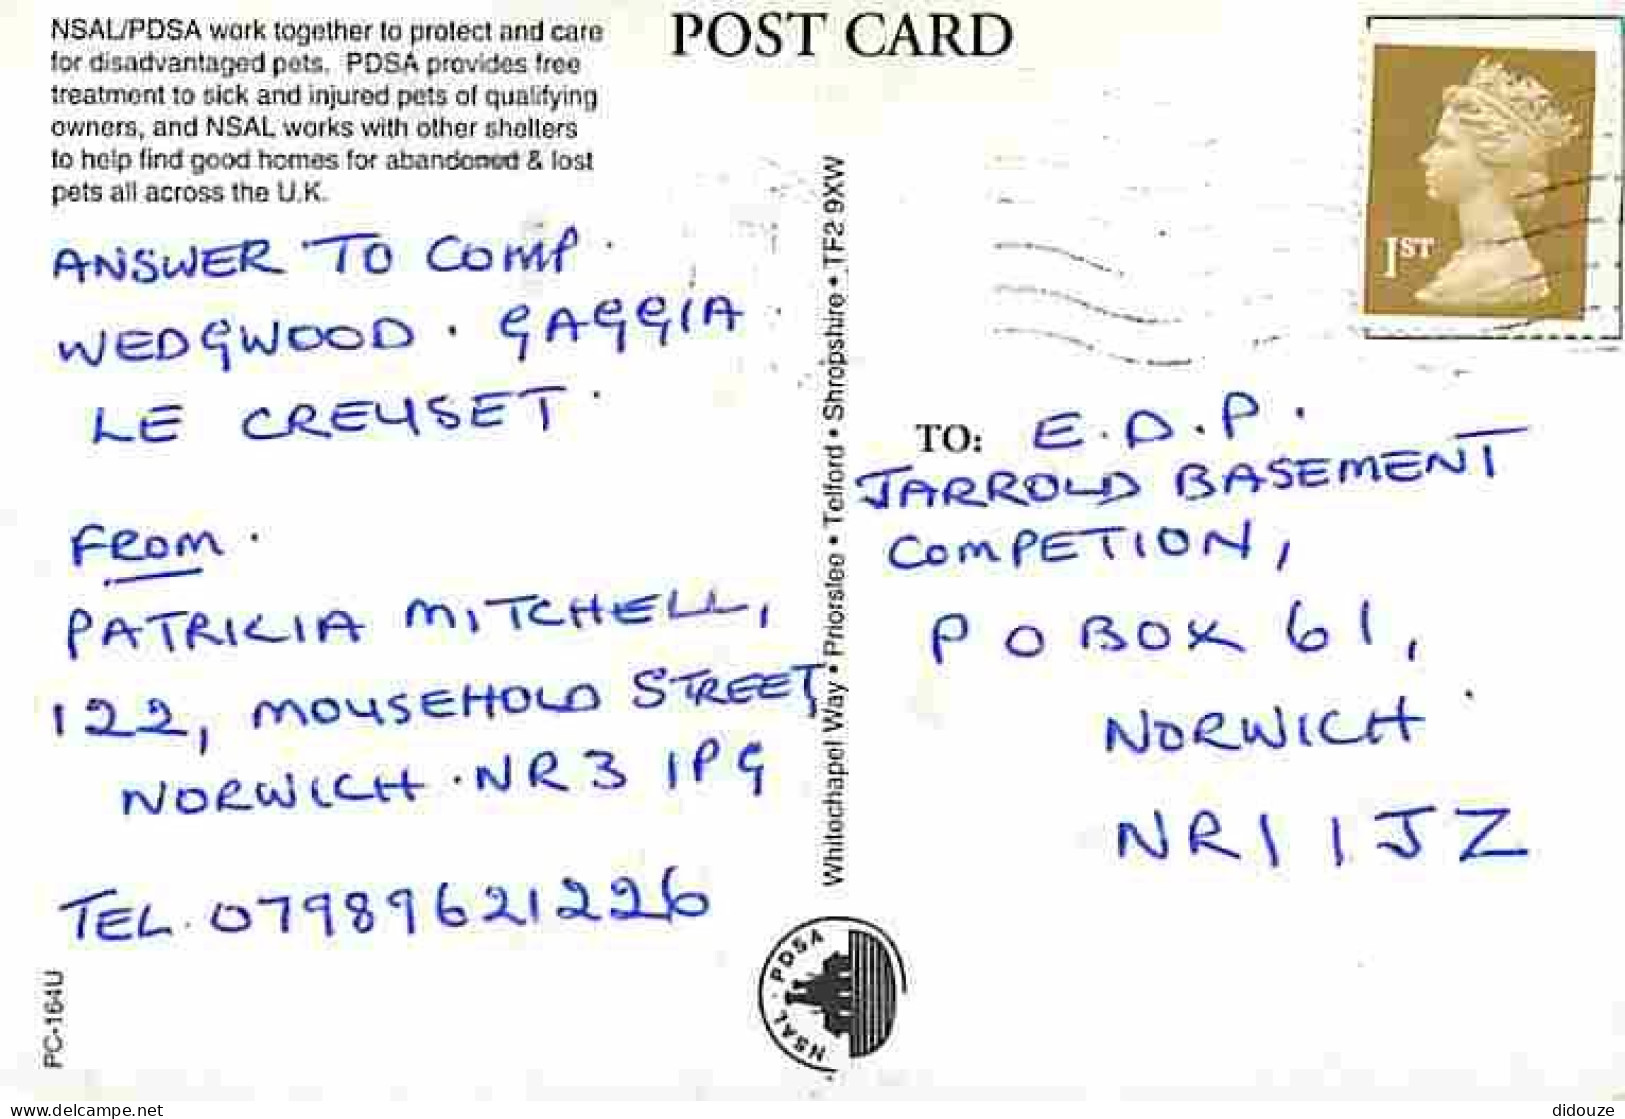 NSAL/PDSA work together to protect and care
for disadvantaged pets. PDSA provides free
treatment to sick and injured pets of qualifying
owners, and NSAL works with other shelters
to help find good homes for abandoned & lost
pets all across the U.K.
POST CARD
1ST
ANSWER TO COMP.
WEDGWOOD. GAGGIA
LE CREUSET.
FROM.
PATRICIA MITCHELL,
122, MOUSEHOLD STREET
NORWICH. NR3 1PG
TEL. 07989621226
PC-164U
Whitechapel Way • Priorslee • Telford • Shropshire • TF2 9XW
NSAL · PDSA
TO: E.D.P.
JARROLD BASEMENT
COMPETION,
P O BOX 61,
NORWICH
NR1 1JZ
www.delcampe.net
didouze